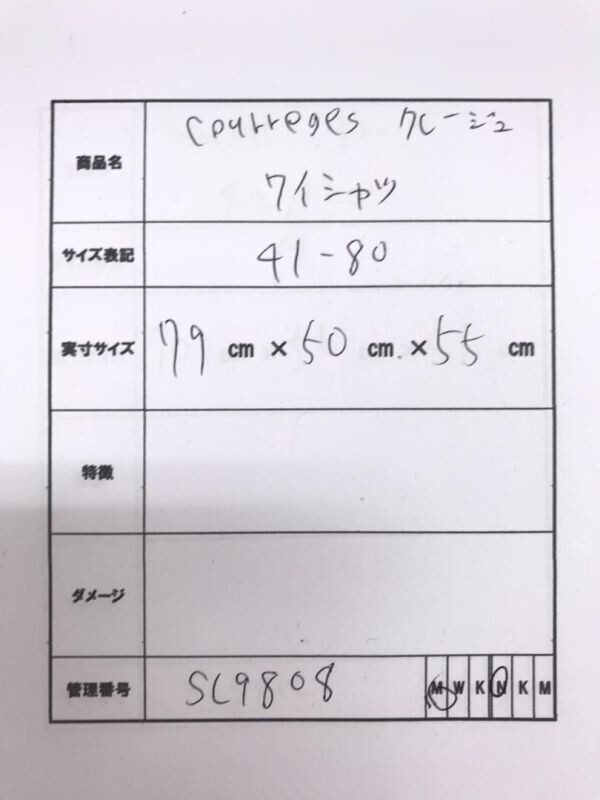 商品名
courreges クレージュ
ワイシャツ
サイズ表記
41-80
実寸サイズ
79 cm × 50 cm × 55 cm
特徴
ダメージ
管理番号
SC9808
M W K N K M